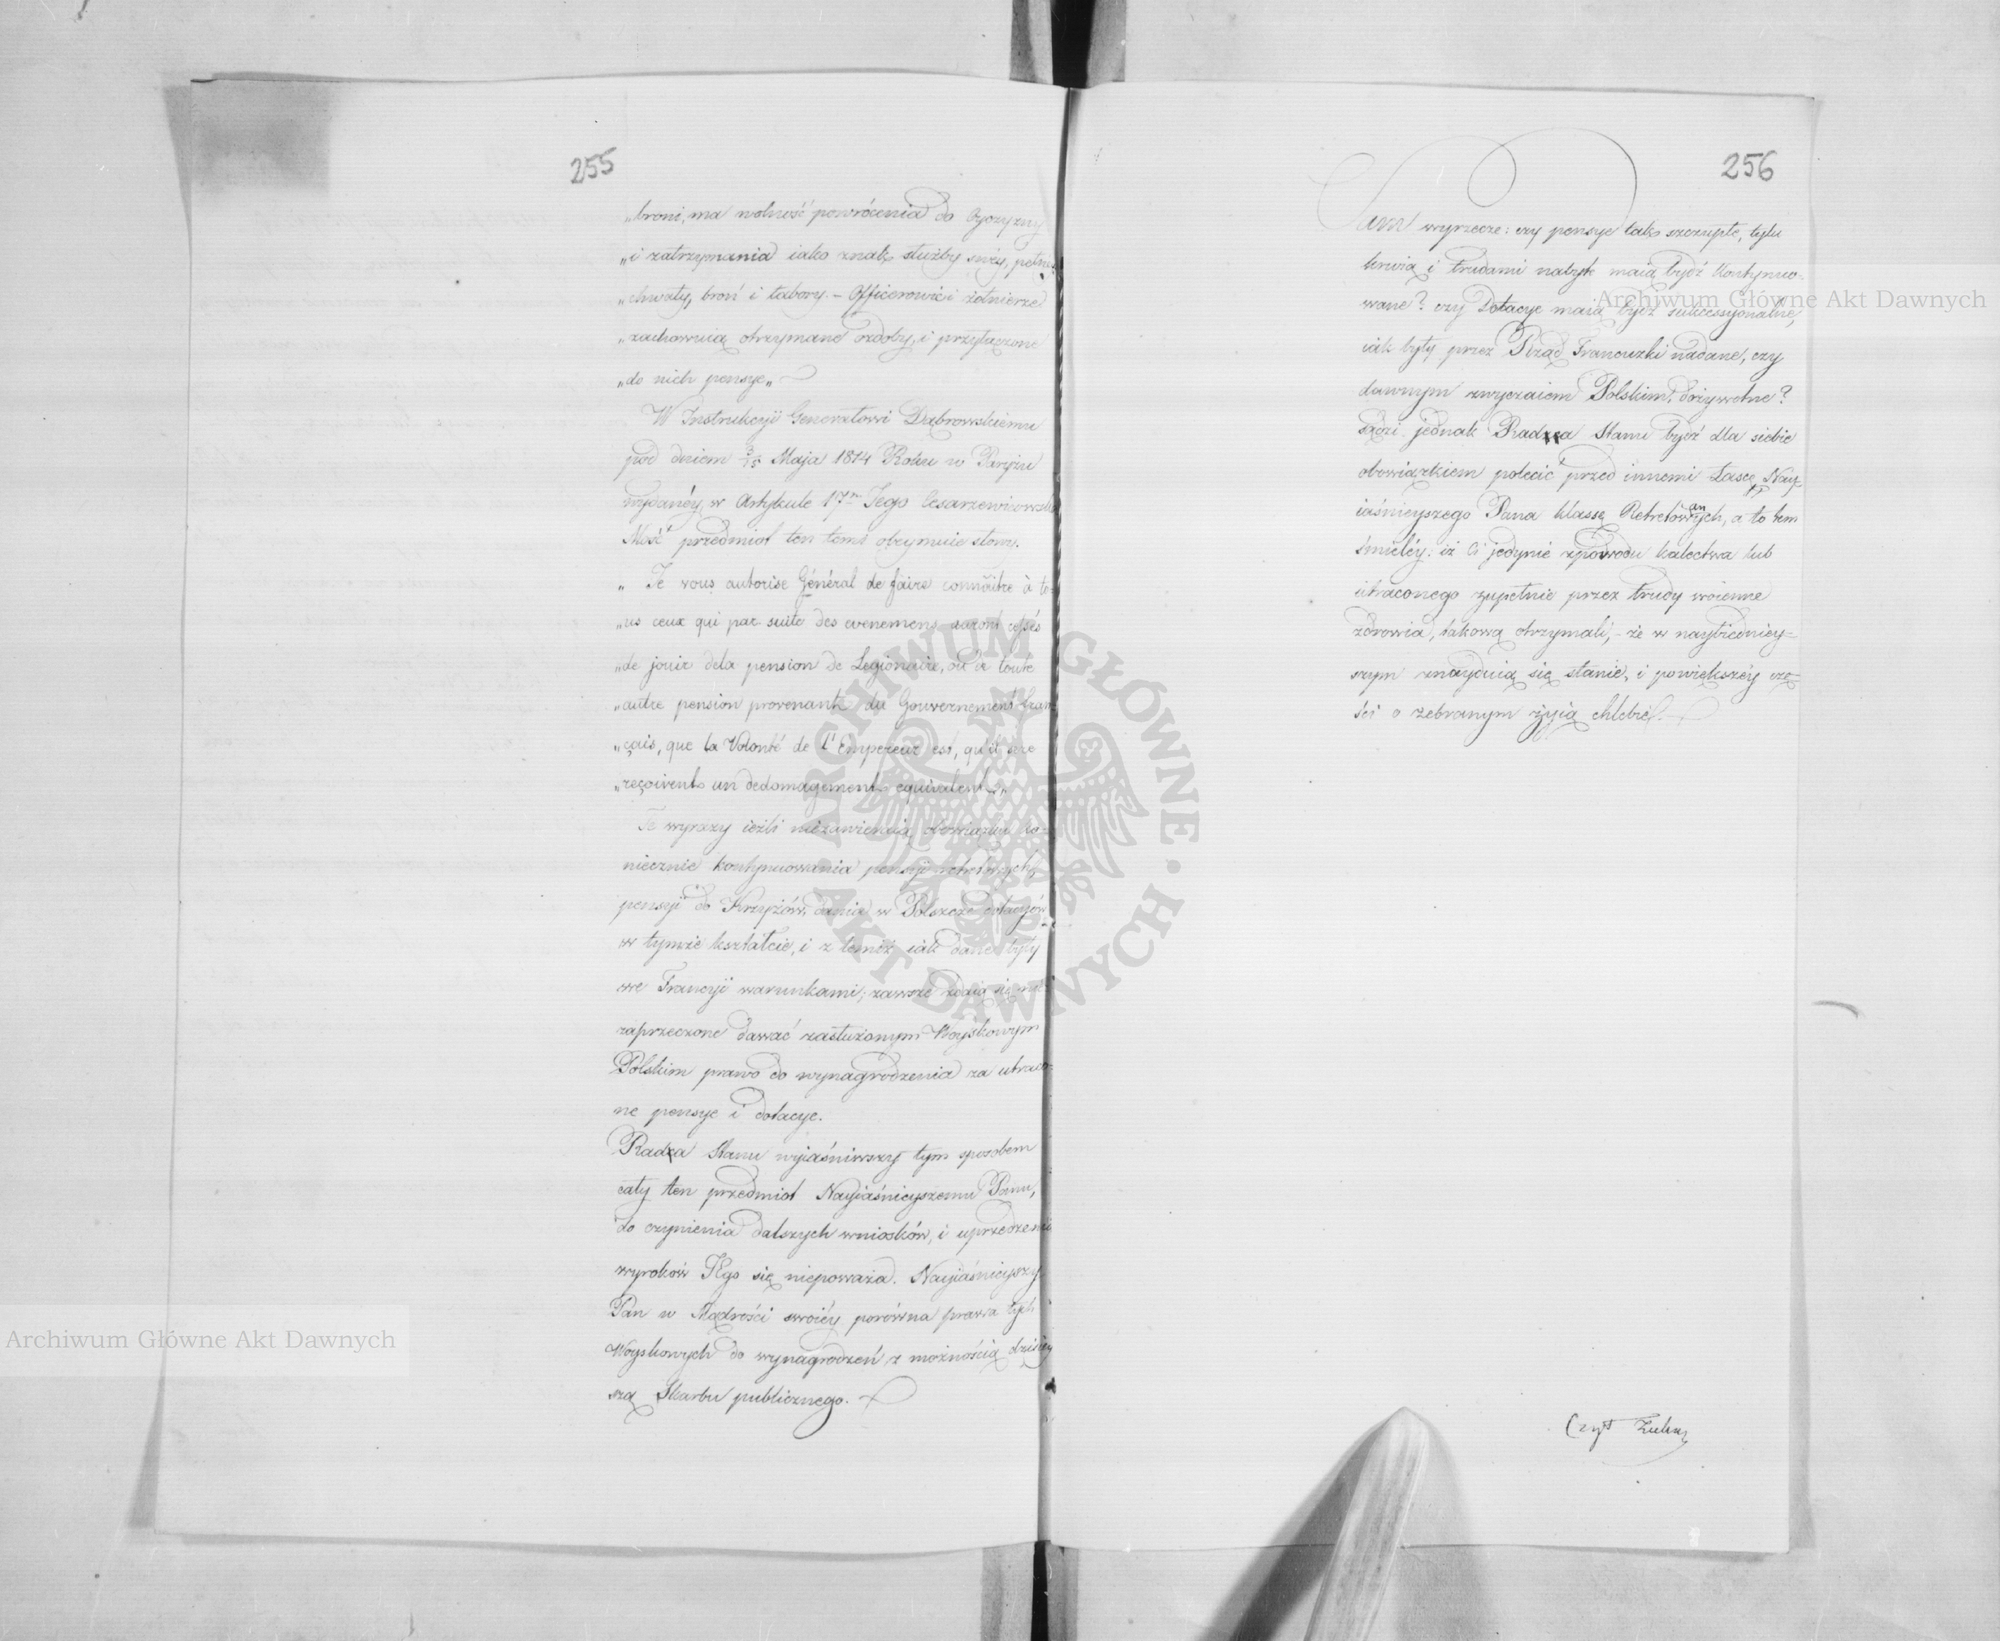 255
„broni, ma wolność powrócenia do Oyczyzny
„i zatrzymania iako znak służby swéy, pełney
„chwały, broń i tabory. – Officerowie i żołnierze
„zachowuią otrzymane ozdoby, i przyłączone
„do nich pensye„
W Instrukcyi Generałowi Dąbrowskiemu
pod dniem 3/15 Maja 1814 Roku w Paryżu
wydanéy w Artykule 17m Jego Cesarzewicowska
Mość przedmiot ten temi obeymuie słowy.
„ Je vous autorise Général de faire connaître à to-
„us ceux qui par suite des evenemens auront cessés
„de jouir dela pension de Legionaire, ou à toute
„autre pension provenant du Gouvernement fran-
„çais, que la Volonté de l'Empereur est, qu'il
„reçoivent un dedomagement equivalent„
Te wyrazy ieżli niezawieraią obowiązku ko-
niecznie kontynuowania pensyi retretowych,
pensyi do Krzyżów, dania w Polszcze dotacyów
w tymże kształcie, i z temiż iak dane były
we Francyi warunkami; zawsze zdaią się nie-
zaprzeczone dawać zasłużonym Woyskowym
Polskim prawo do wynagrodzenia za utraco-
ne pensye i dotacye.
Radza Stanu wyiaśniwszy tym sposobem
cały ten przedmiot Nayiaśnieyszemu Panu,
do czynienia dalszych wniosków, i uprzedzenia
wyroków JEgo się niepoważa. Nayiaśnieyszy
Pan w Mądrości swoiéy porówna prawa tych
Woyskowych do wynagrodzeń z możnością dzisiey
szą Skarbu publicznego.
256
Sam wyrzecze: czy pensye tak szczupłe, tylu
krwią i trudami nabyte maią bydź kontynuo-
wane? czy Dotacye maią bydź sukcessyonalne,
iak były przez Rząd Francuzki nadane, czy
dawnym zwyczaiem Polskim, dożywotne?
sądzi jednak Radza Stanu bydź dla siebie
obowiązkiem polecić przed innemi Łasce Nay-
iaśnieyszego Pana klasę Retretowanych, a to tem
śmieléy: iż Ci jedynie zpowodu kalectwa lub
utraconego zupełnie przez trudy woienne
zdrowia, takową otrzymali; – że w naybiedniey-
szym znayduią się stanie, i powiększéy czę-
ści o żebranym żyią chlebie.
Czyt
Archiwum Główne Akt Dawnych
Archiwum Główne Akt Dawnych
ARCHIWUM GŁÓWNE · AKT DAWNYCH ·